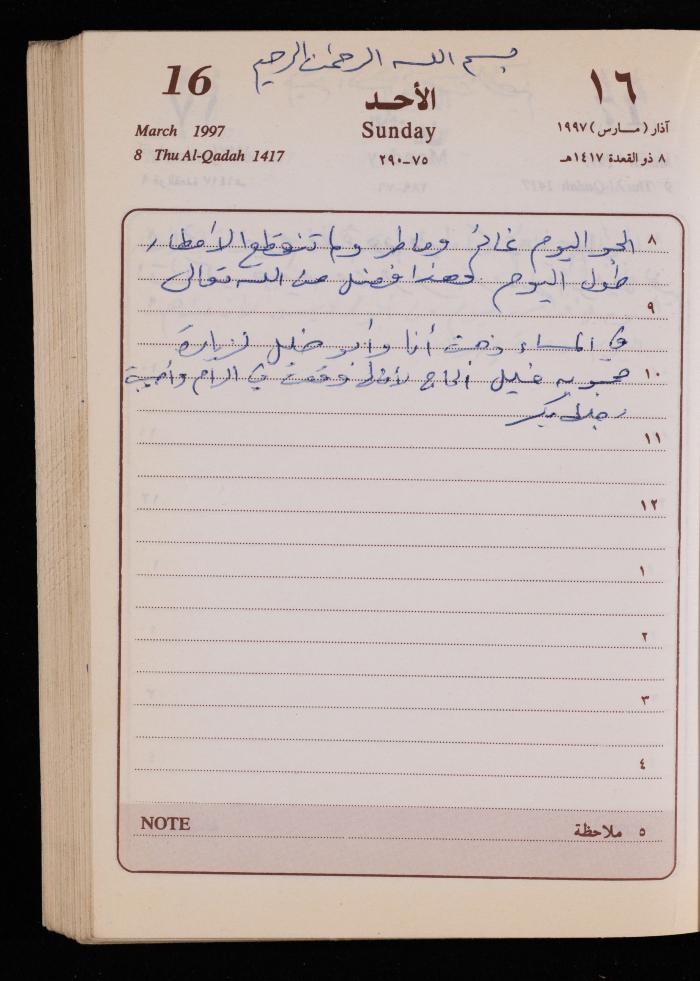 بسم الله الرحمن الرحيم
16 الأحد ١٦
March 1997 Sunday آذار (مارس) ١٩٩٧
8 Thu Al-Qadah 1417 ٧٥-٢٩٠ ٨ ذو القعدة ١٤١٧هـ
٨ الجو اليوم غائم وماطر ولم تنقطع الأمطار
طول اليوم وهذا فضل من الله تعالى
٩
في المساء ذهبت أنا وأبو خليل لزيارة
١٠ محبوبه خليل الحاج لأنها وقعت في الدار وأصيبة
رجلها بكسر
١١
١٢
١
٢
٣
٤
NOTE ٥ ملاحظة